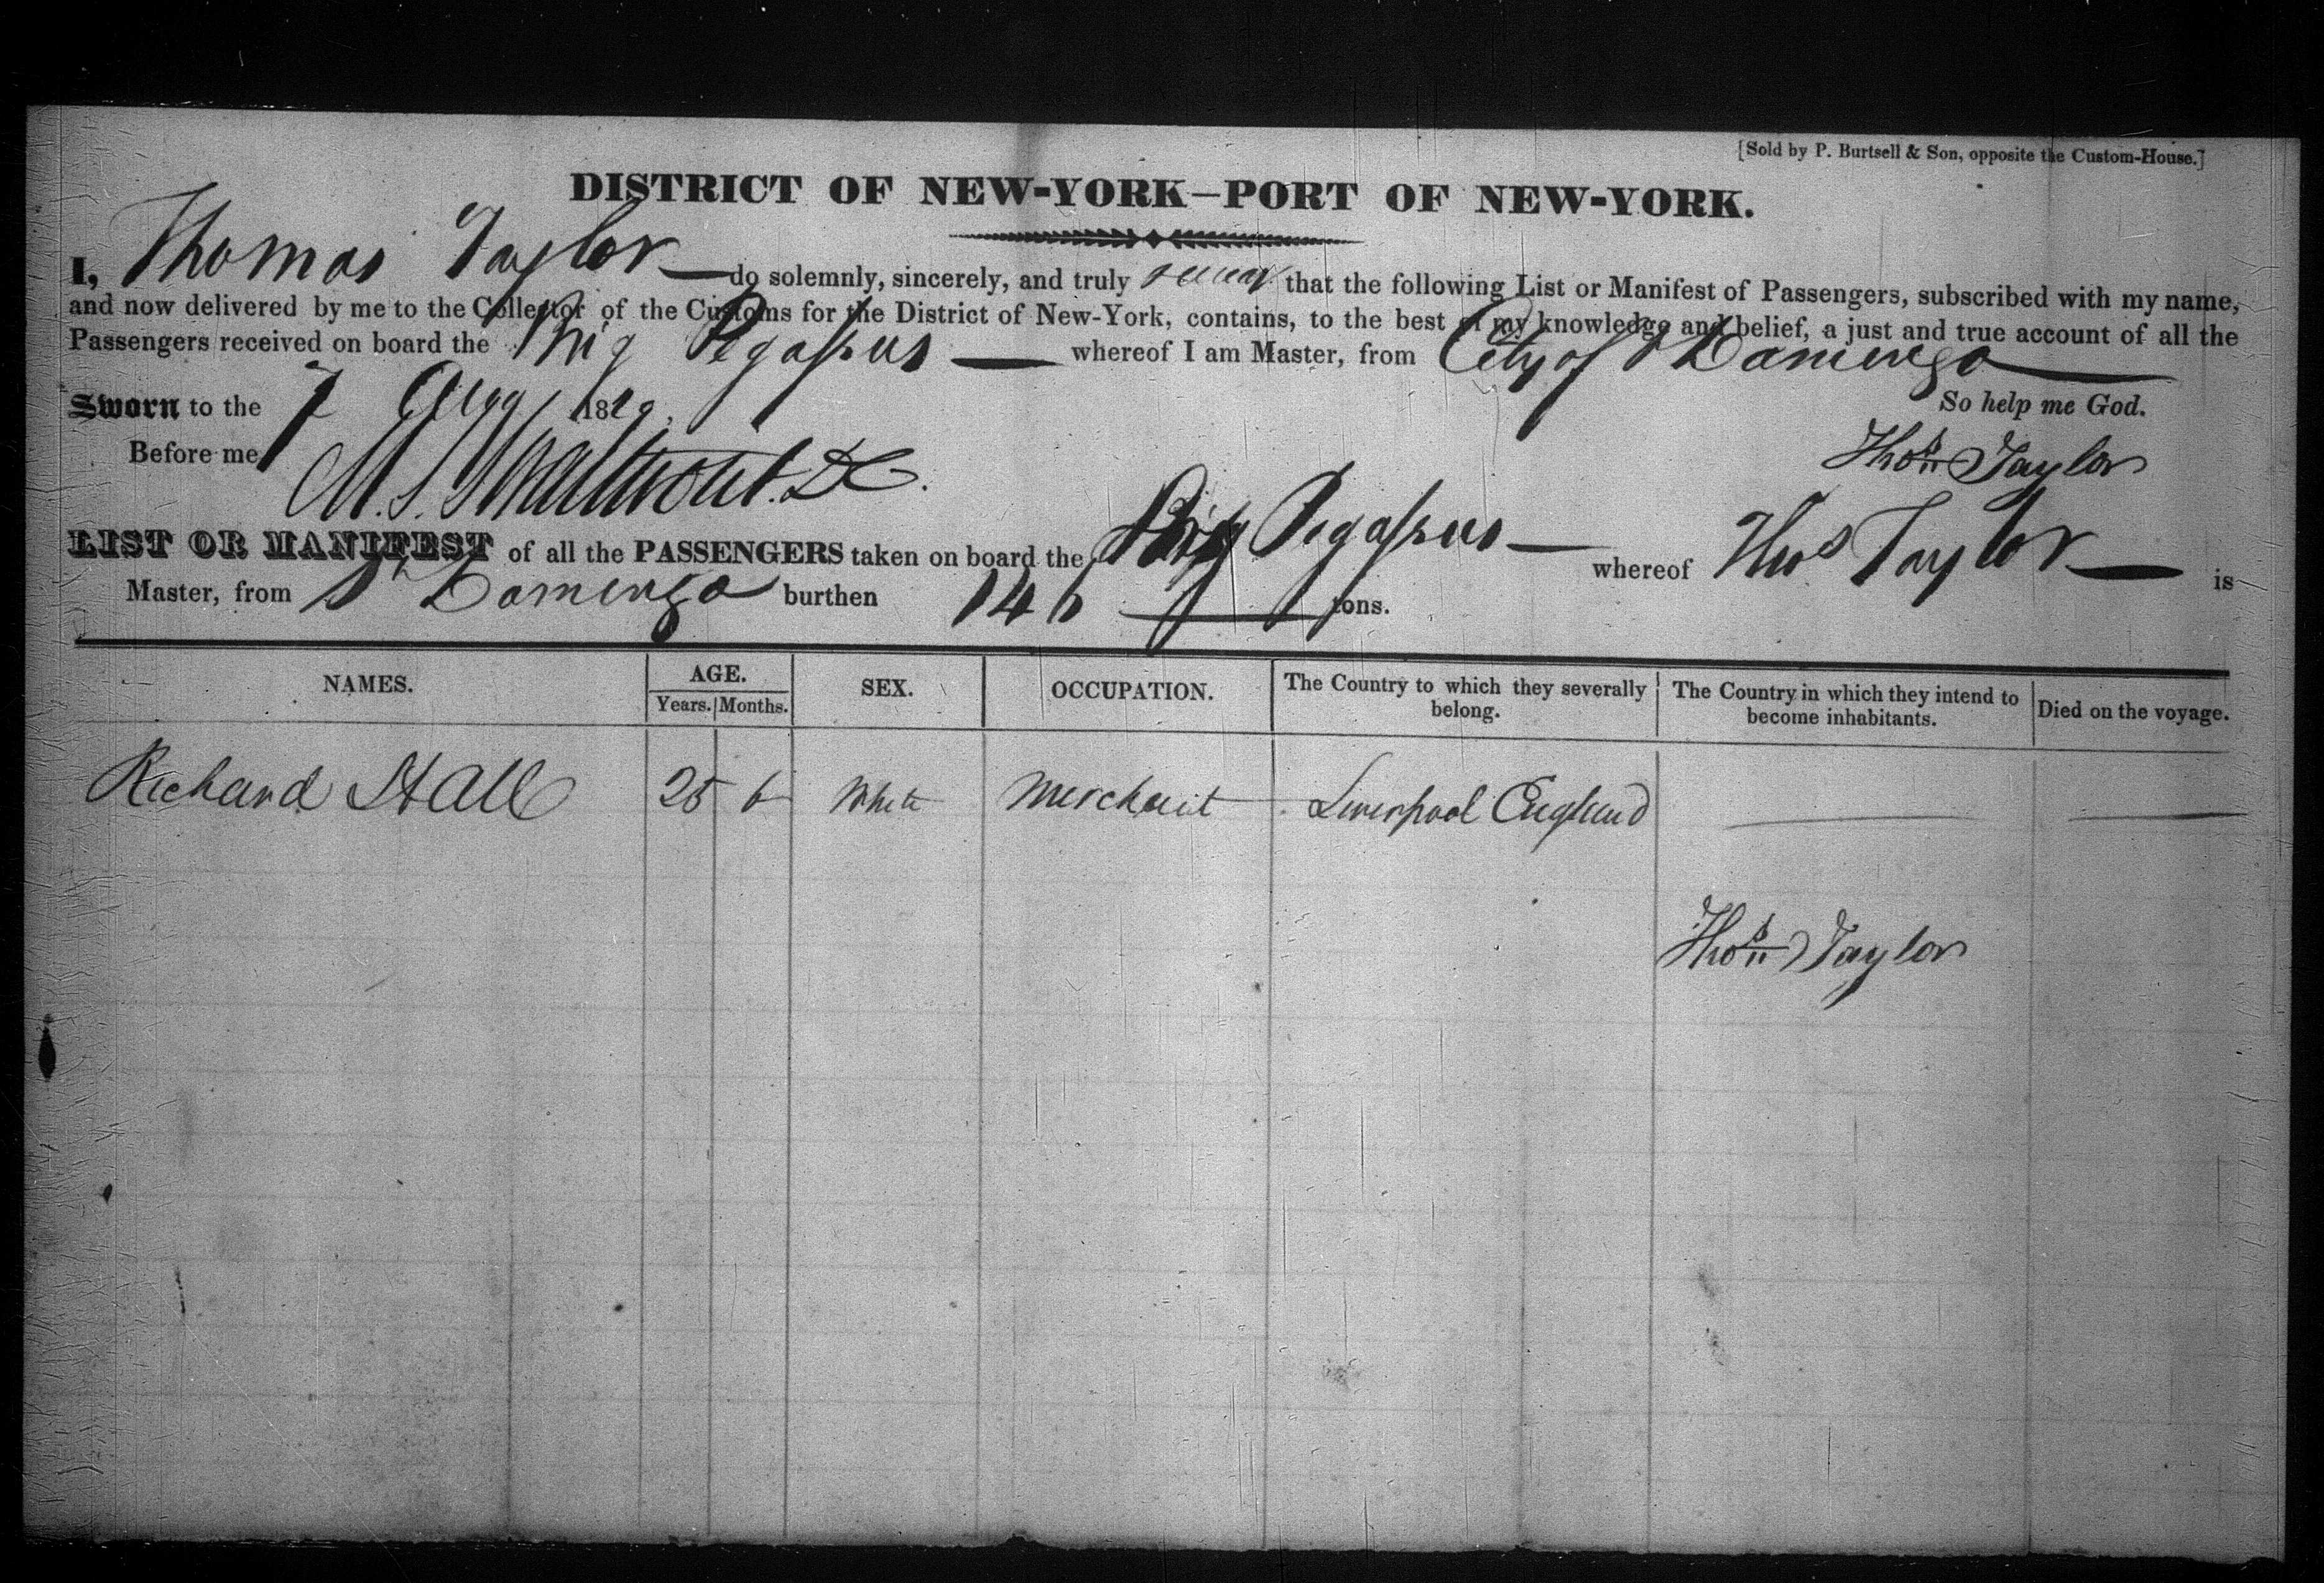 [Sold by P. Burtsell & Son, opposite the Custom-House.]
DISTRICT OF NEW-YORK—PORT OF NEW-YORK.
I, Thomas Taylor do solemnly, sincerely, and truly swear that the following List or Manifest of Passengers, subscribed with my name,
and now delivered by me to the Collector of the Customs for the District of New-York, contains, to the best of my knowledge and belief, a just and true account of all the
Passengers received on board the Brig Pegassus whereof I am Master, from City of St Domingo
Sworn to the 7 Augt 1829. So help me God.
Before me M. S. DC. Thos Taylor
LIST OR MANIFEST of all the PASSENGERS taken on board the Brig Pegassus whereof Thos Taylor is
Master, from St Domingo burthen 146 tons.
NAMES. AGE. Years. Months. SEX. OCCUPATION. The Country to which they severally belong. The Country in which they intend to become inhabitants. Died on the voyage.
Richard Hall 25 6 White Merchant Liverpool England
Thos Taylor